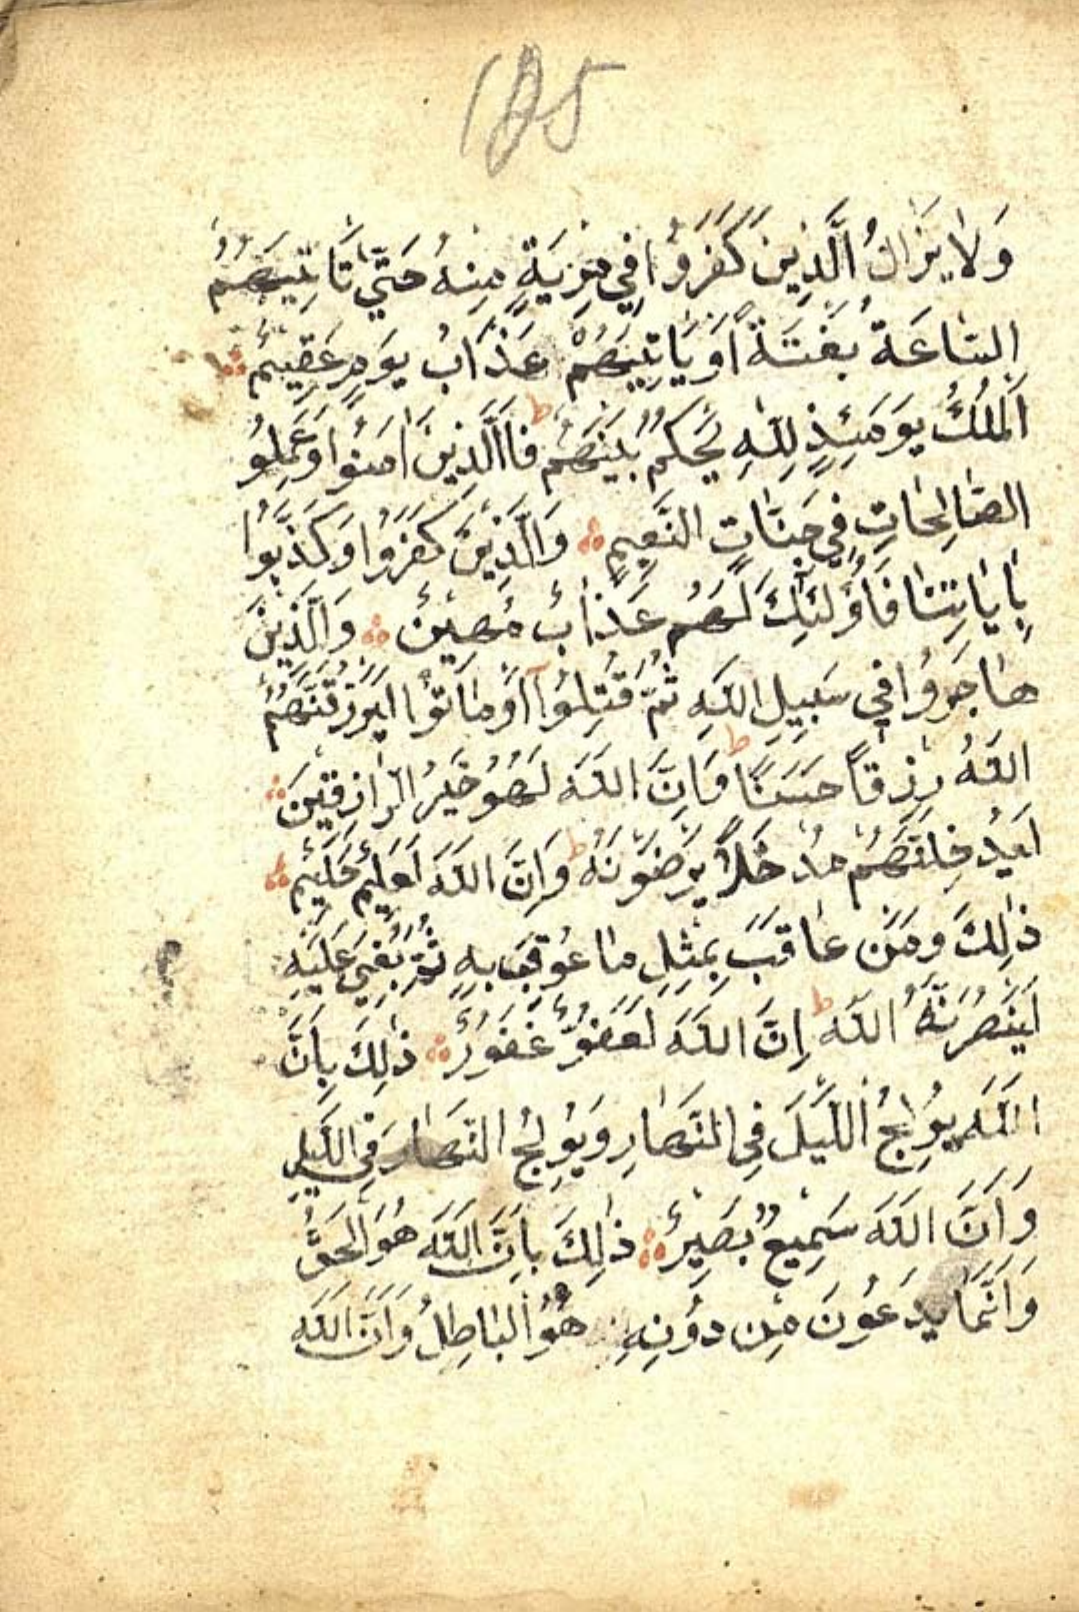 185
وَلَا يَزَالُ الَّذِينَ كَفَرُوا فِي مِرْيَةٍ مِنْهُ حَتَّى تَأتِيَهُمُ
السَّاعَةُ بَغْتَةً أَوْ يَأتِيَهُمْ عَذَابُ يَومٍ عَقِيمٍ
اَلْمُلْكُ يَوْمَئِذٍ لِلّٰهِ يَحْكُمُ بَيْنَهُمْ ط فَاالَّذِينَ اٰمَنُوا وَعَمِلُو
الصَّالِحَاتِ فِي جَنَّاتِ النَّعِيمِ وَالَّذِينَ كَفَرُوا وَكَذَّبُوا
بِاٰيَاتِنَا فَأُولٰئِكَ لَهُمْ عَذَابٌ مُهِينٌ وَالَّذِينَ
هَاجَرُوا فِي سَبِيلِ اللّٰهِ ثُمَّ قُتِلُوا أَوْ مَاتُوا لَيَرْزُقَنَّهُمُ
اللّٰهُ رِزْقًا حَسَنًا ط وَاِنَّ اللّٰهَ لَهُوَ خَيْرُ الرَّازِقِينَ
لَيُدْخِلَنَّهُمْ مُدْخَلًا يَرْضَوْنَهُ ط وَاِنَّ اللّٰهَ لَعَلِيمٌ حَلِيمٌ
ذٰلِكَ وَمَنْ عَاقَبَ بِمِثْلِ مَا عُوقِبَ بِهِ ثُمَّ بُغِيَ عَلَيْهِ
لَيَنْصُرَنَّهُ اللّٰهُ ط اِنَّ اللّٰهَ لَعَفُوٌّ غَفُورٌ ذٰلِكَ بِاَنَّ
اللّٰهَ يُوْلِجُ اللَّيْلَ فِي النَّهَارِ وَيُوْلِجُ النَّهَارَ فِي اللَّيْلِ
وَاَنَّ اللّٰهَ سَمِيعٌ بَصِيرٌ ذٰلِكَ بِاَنَّ اللّٰهَ هُوَ الْحَقُّ
وَاَنَّمَا يَدْعُونَ مِنْ دُوْنِهِ هُوَ الْبَاطِلُ وَاَنَّ اللّٰهَ